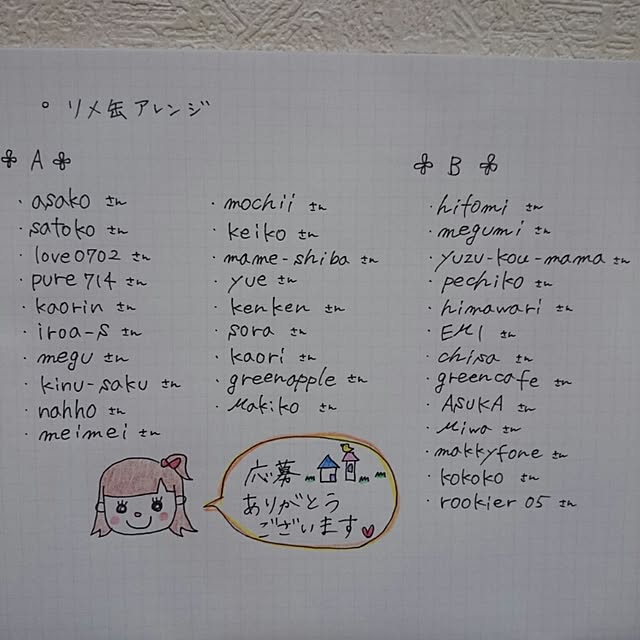 。リメ缶アレンジ
A
・asako さん
・satoko さん
・love0702 さん
・pure714 さん
・kaorin さん
・iroa-s さん
・megu さん
・kinu-saku さん
・nahho さん
・meimei さん
・mochii さん
・keiko さん
・mame-shiba さん
・yue さん
・kenken さん
・sora さん
・kaori さん
・greenapple さん
・Makiko さん
B
・hitomi さん
・megumi さん
・yuzu-kou-mama さん
・pechiko さん
・himawari さん
・EMI さん
・chisa さん
・greencafe さん
・ASUKA さん
・Miwa さん
・makkyfone さん
・kokoko さん
・rookier05 さん
応募
ありがとう
ございます